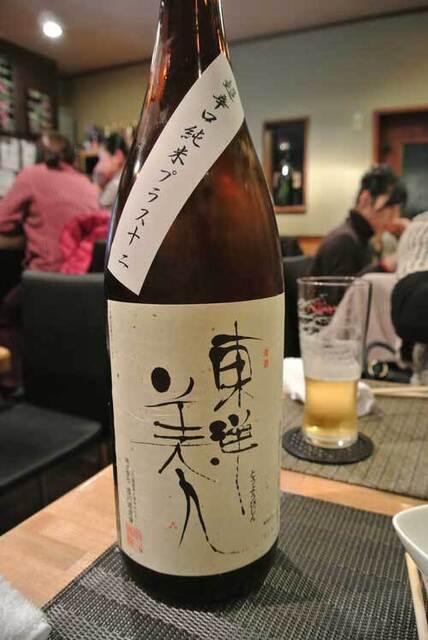 超辛口純米プラス十二
東洋
美人
とうようびじん
清酒